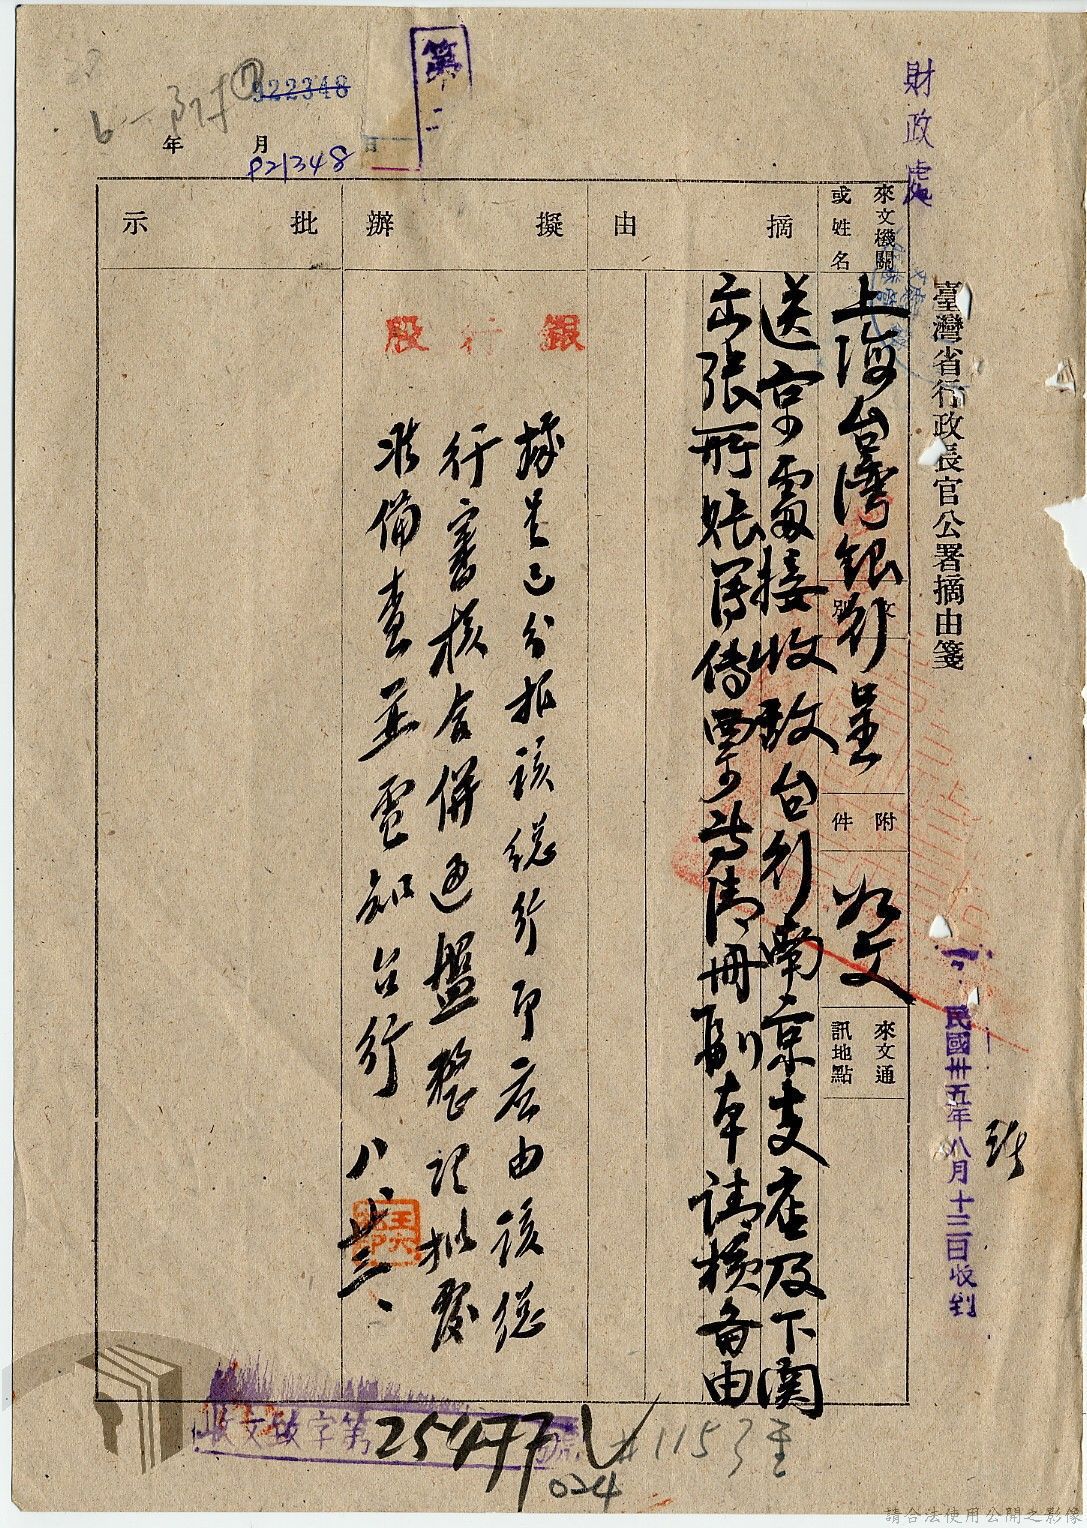 財政處
臺灣省行政長官公署摘由箋
民國卅五年八月十三日收到
來文機關或姓名
上海台灣銀行呈
文號
附件
如文
來文通訊地點
摘由
送京處接收敵台行南京支店及下関
出張所帳簿傳票等清冊副本請核备由
擬辦
銀行股
據呈已分報該總行即應由該總
行審核合併通盤整理擬發
准備查並電知台行 八、廿三、
批示
第
年 月 日
922348
021348
收文致字第25477號
024
#1153
請合法使用公開之影像